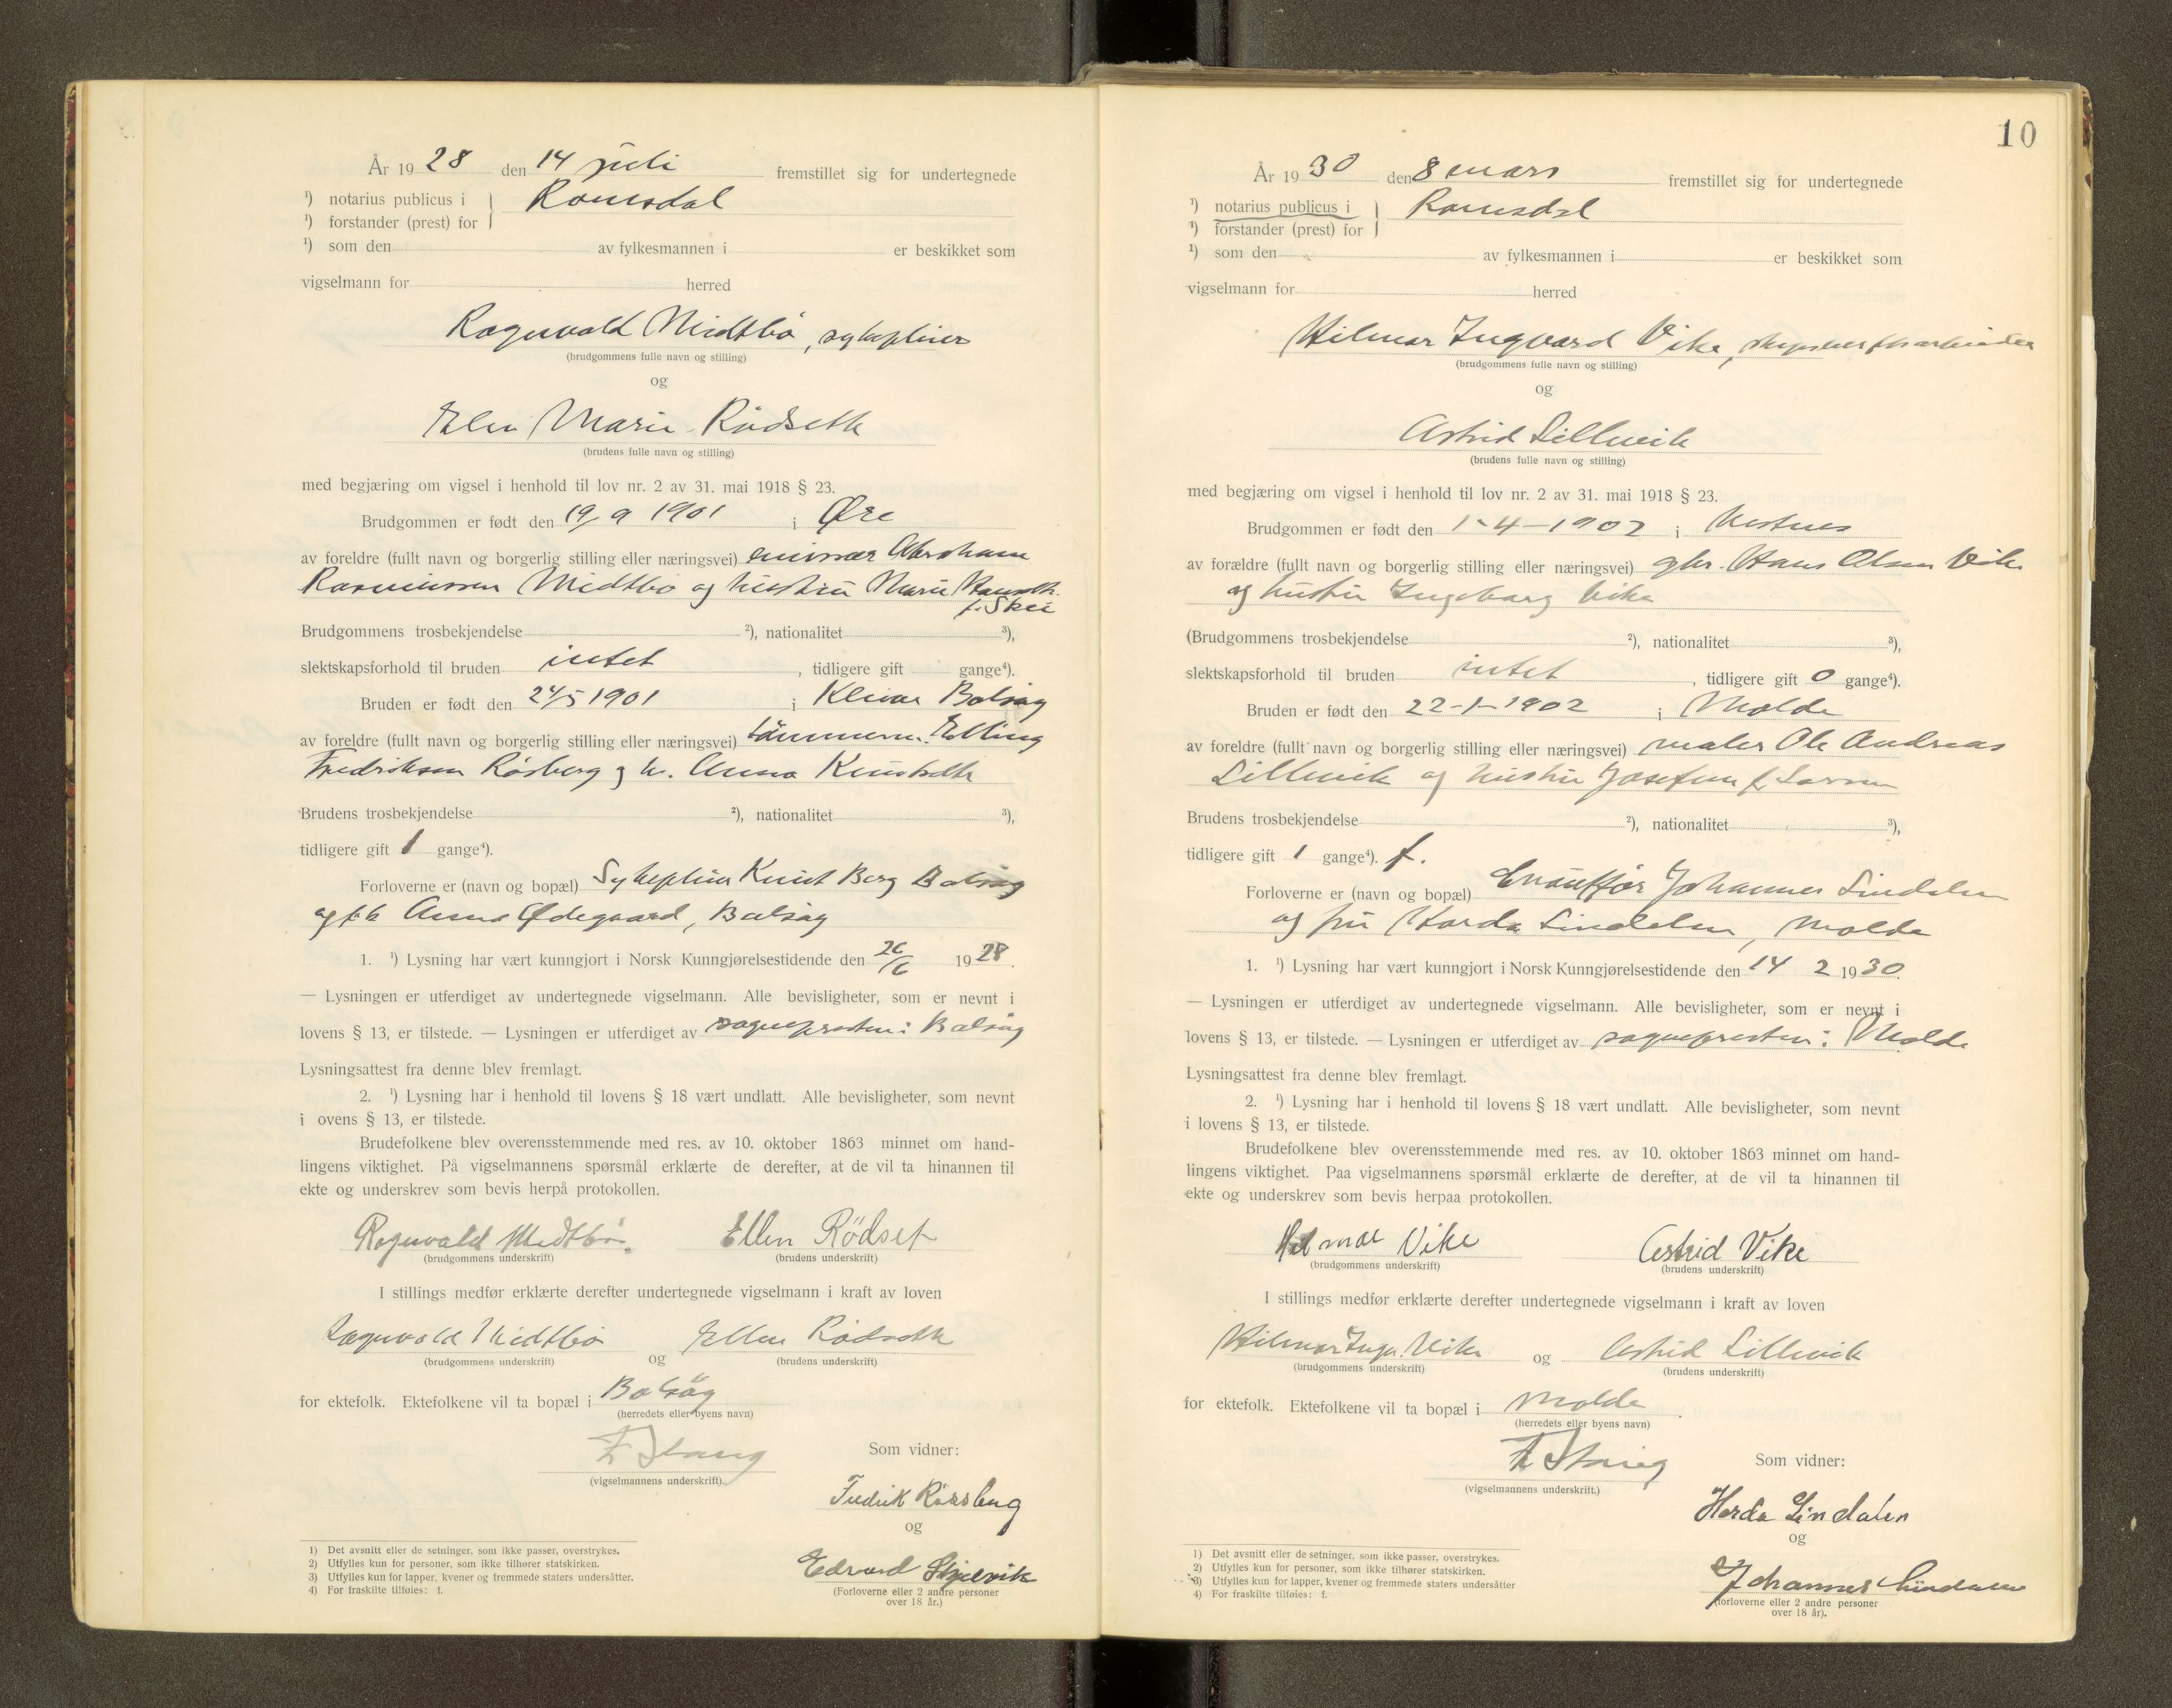 År 1928 den 14 juli fremstillet sig for undertegnede
¹) notarius publicus i } Romsdal
¹) forstander (prest) for
¹) som den av fylkesmannen i er beskikket som
vigselmann for herred
Ragnvald Midtbö, sykepleier
(brudgommens fulle navn og stilling)
og
Ellen Marie Rödseth
(brudens fulle navn og stilling)
med begjæring om vigsel i henhold til lov nr. 2 av 31. mai 1918 § 23.
Brudgommen er født den 19/9 1901 i Øre
av foreldre (fullt navn og borgerlig stilling eller næringsvei) emissær Abraham
Rasmussen Midtbö og hustru Marie
f. Skei
Brudgommens trosbekjendelse ²), nationalitet ³),
slektskapsforhold til bruden intet , tidligere gift gange⁴).
Bruden er født den 24/5 1901 i Kleive Bolsøy
av foreldre (fullt navn og borgerlig stilling eller næringsvei) tömmerm. Elling
Fredriksen Rösberg og h. Anna Knutseth
Brudens trosbekjendelse ²), nationalitet ³),
tidligere gift 1 gange⁴).
Forloverne er (navn og bopæl) Sykepleier Knut Berg Bolsøy
og frk Anna Ødegaard, Bolsøy
1. ¹) Lysning har vært kunngjort i Norsk Kunngjørelsestidende den 26/6 1928.
— Lysningen er utferdiget av undertegnede vigselmann. Alle bevisligheter, som er nevnt i
lovens § 13, er tilstede. — Lysningen er utferdiget av sognepresten i Bolsøy
Lysningsattest fra denne blev fremlagt.
2. ¹) Lysning har i henhold til lovens § 18 vært undlatt. Alle bevisligheter, som nevnt
i ovens § 13, er tilstede.
Brudefolkene blev overensstemmende med res. av 10. oktober 1863 minnet om hand-
lingens viktighet. På vigselmannens spørsmål erklærte de derefter, at de vil ta hinannen til
ekte og underskrev som bevis herpå protokollen.
Ragnvald Midtbö. Ellen Rödset
(brudgommens underskrift) (brudens underskrift)
I stillings medfør erklærte derefter undertegnede vigselmann i kraft av loven
Ragnvald Midtbö og Ellen Rödseth
(brudgommens underskrift) (brudens underskrift)
for ektefolk. Ektefolkene vil ta bopæl i Bolsöy
(herredets eller byens navn)
Stang
(vigselmannens underskrift).
Som vidner:
Fredrik Rössberg
og
Edvard
(Forloverne eller 2 andre personer
over 18 år.)
1) Det avsnitt eller de setninger, som ikke passer, overstrykes.
2) Utfylles kun for personer, som ikke tilhører statskirken.
3) Utfylles kun for lapper, kvener og fremmede staters undersåtter.
4) For fraskilte tilføies: f.
10
År 1930 den 8 mars fremstillet sig for undertegnede
¹) notarius publicus i } Romsdal
¹) forstander (prest) for
¹) som den av fylkesmannen i er beskikket som
vigselmann for herred
Hilmar Ingvard Vike,
(brudgommens fulle navn og stilling)
og
Astrid Lillevik
(brudens fulle navn og stilling)
med begjæring om vigsel i henhold til lov nr. 2 av 31. mai 1918 § 23.
Brudgommen er født den 1-4-1902 i Vestnes
av forældre (fullt navn og borgerlig stilling eller næringsvei) gbr. Hans Olsen Vike
og hustru Ingeborg Vike
(Brudgommens trosbekjendelse ²), nationalitet ³),
slektskapsforhold til bruden intet , tidligere gift 0 gange⁴).
Bruden er født den 22-1-1902 i Molde
av foreldre (fullt navn og borgerlig stilling eller næringsvei) maler Ole Andreas
Lillevik og hustru Josefine f. Larsen
Brudens trosbekjendelse ²), nationalitet ³),
tidligere gift 1 gange⁴). f.
Forloverne er (navn og bopæl) Chauffør Johannes Lindalen
og fru Horda Lindalen, Molde
1. ¹) Lysning har vært kunngjort i Norsk Kunngjørelsestidende den 14 2 1930.
— Lysningen er utferdiget av undertegnede vigselmann. Alle bevisligheter, som er nevnt i
lovens § 13, er tilstede. — Lysningen er utferdiget av sognepresten i Molde
Lysningsattest fra denne blev fremlagt.
2. ¹) Lysning har i henhold til lovens § 18 vært undlatt. Alle bevisligheter, som nevnt
i lovens § 13, er tilstede.
Brudefolkene blev overensstemmende med res. av 10. oktober 1863 minnet om hand-
lingens viktighet. Paa vigselmannens spørsmål erklærte de derefter, at de vil ta hinannen til
ekte og underskrev som bevis herpaa protokollen.
Hilmar Vike Astrid Vike
(brudgommens underskrift) (brudens underskrift)
I stillings medfør erklærte derefter undertegnede vigselmann i kraft av loven
Hilmar Ingv. Vike og Astrid Lillevik
(brudgommens underskrift) (brudens underskrift)
for ektefolk. Ektefolkene vil ta bopæl i Molde
(herredets eller byens navn)
Stang
(vigselmannens underskrift.)
Som vidner:
Horda Lindalen
og
Johannes Lindalen
(forloverne eller 2 andre personer
over 18 år).
1) Det avsnitt eller de setninger, som ikke passer, overstrykes.
2) Utfylles kun for personer, som ikke tilhører statskirken.
3) Utfylles kun for lapper, kvener og fremmede staters undersåtter
4) For fraskilte tilføies: f.